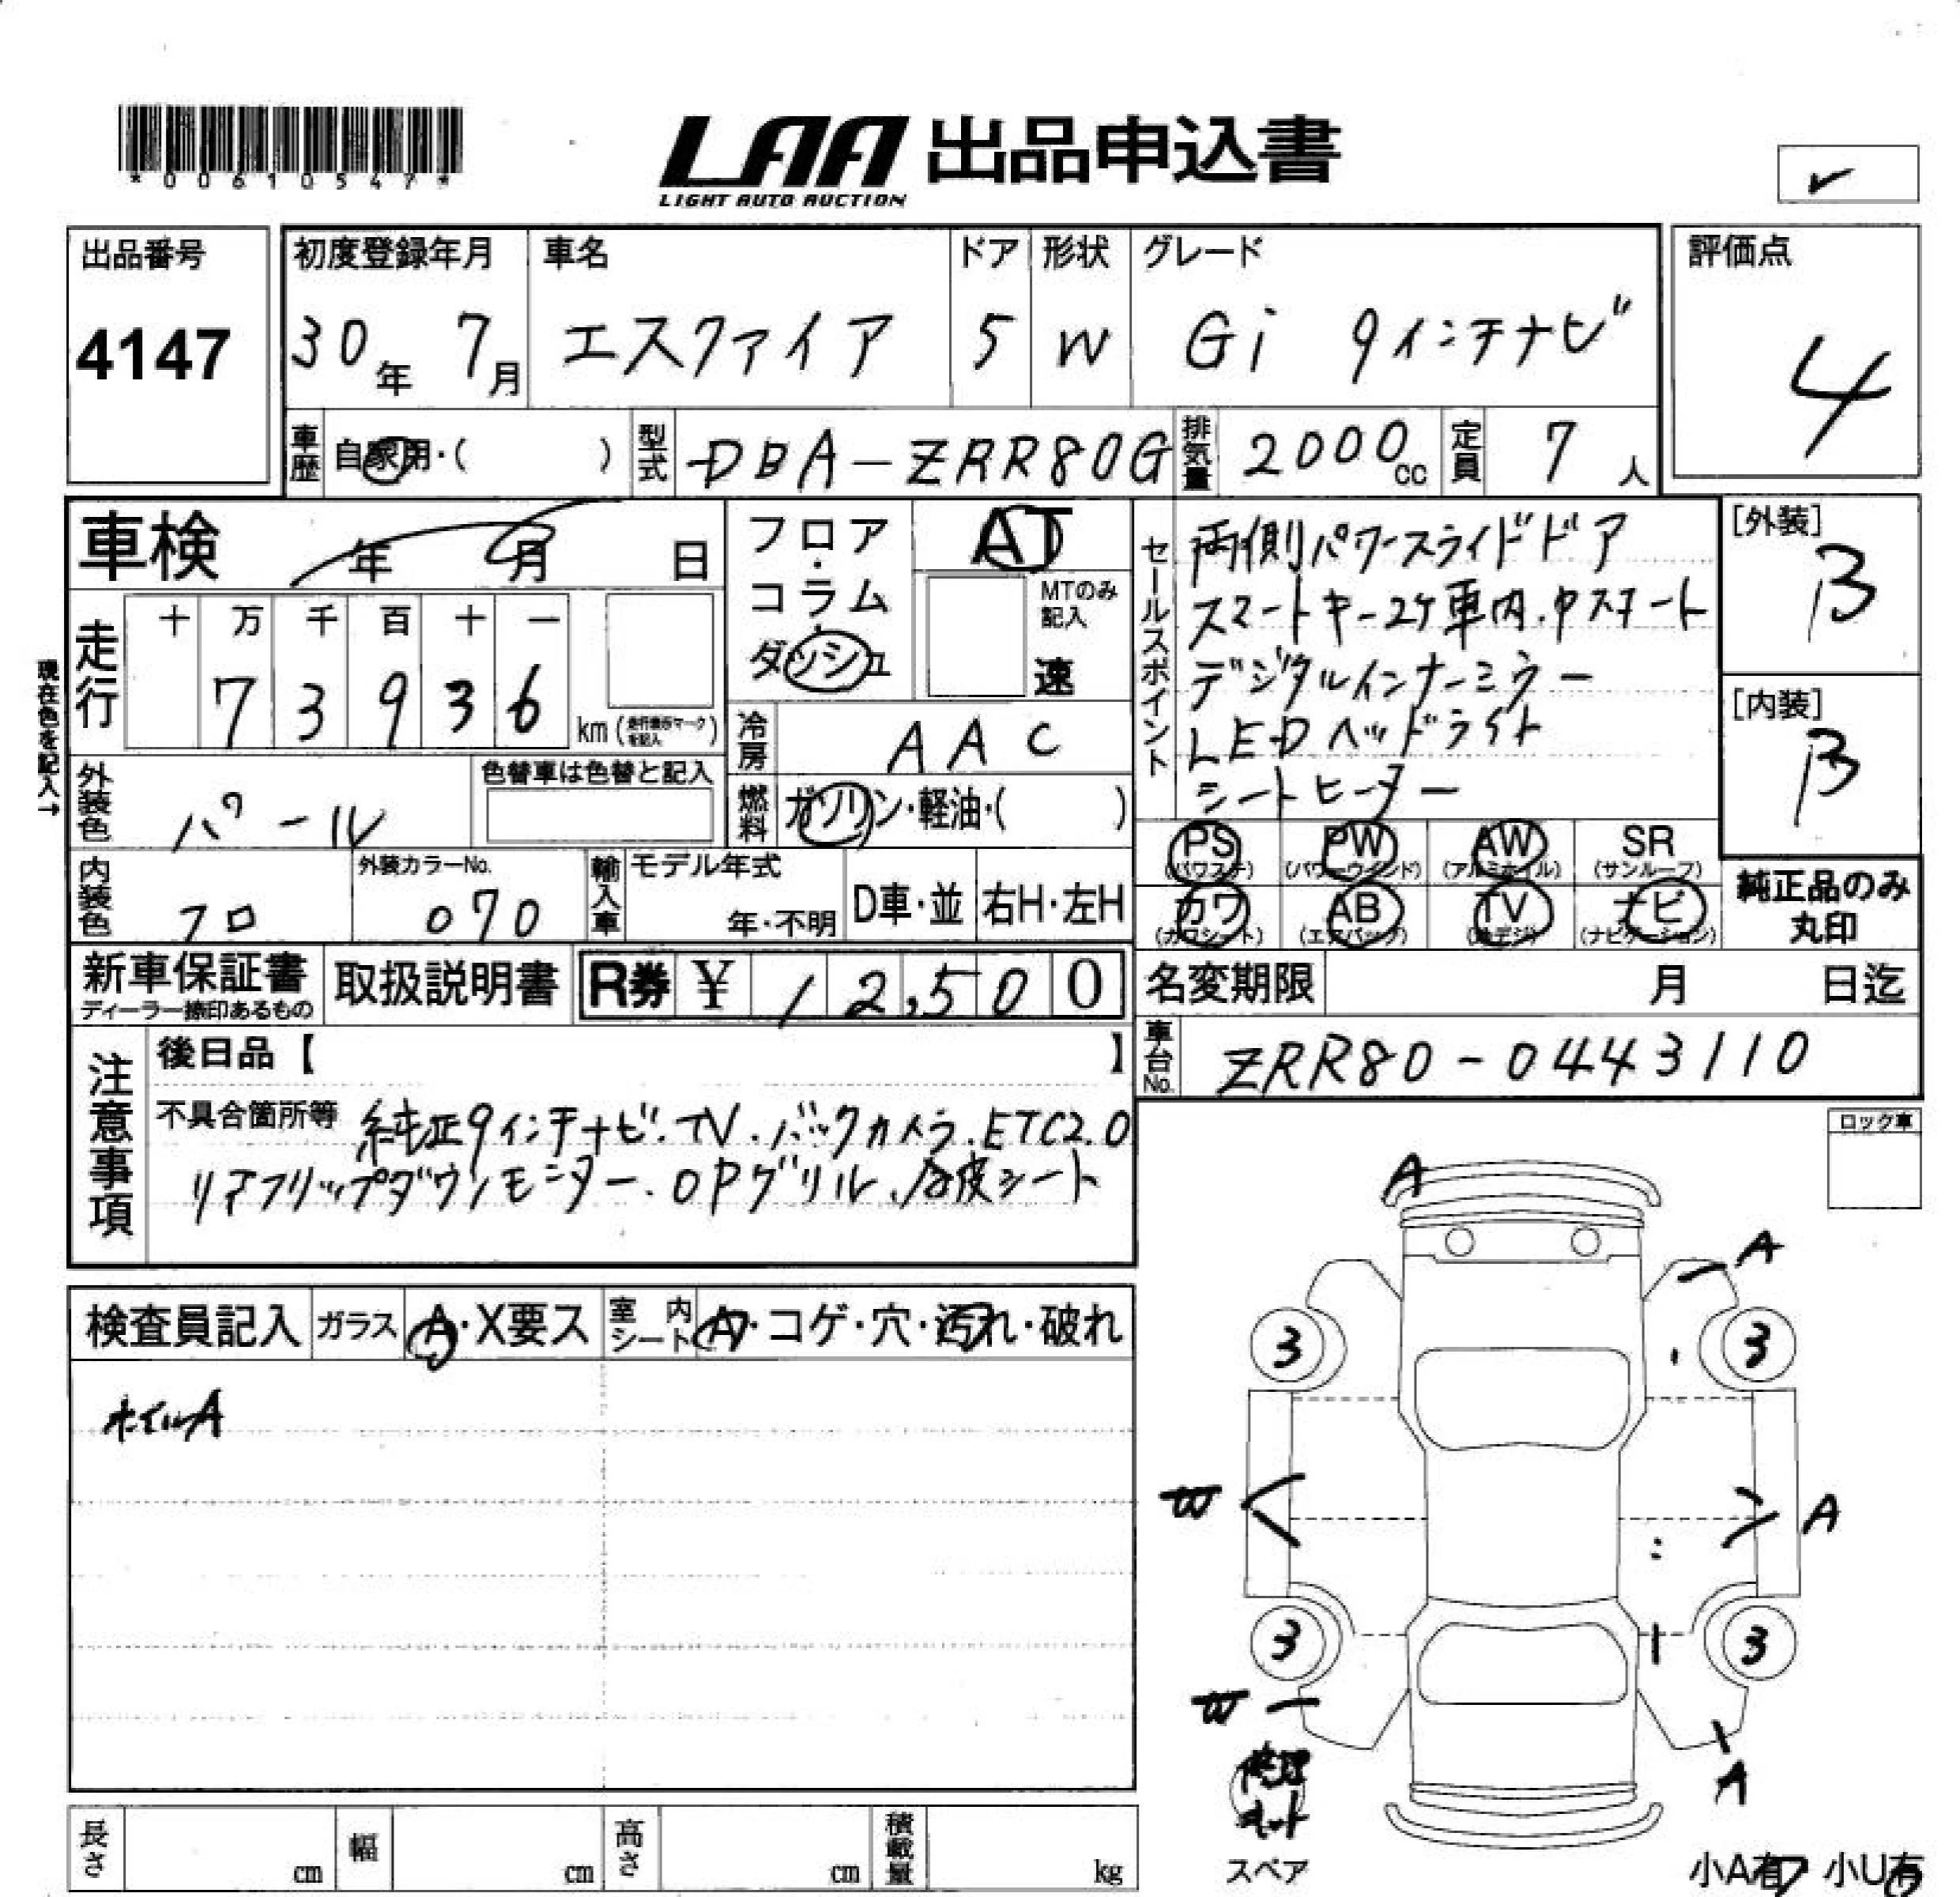 *00610547*
LAA 出品申込書
LIGHT AUTO AUCTION
出品番号 初度登録年月 車名 ドア 形状 グレード 評価点
4147 30年 7月 エスクァイア 5 W Gi 9インチナビ 4
車歴 自家用・( ) 型式 DBA-ZRR80G 排気量 2000cc 定員 7人
車検 年 月 日
フロア・コラム・ダッシュ
AT
MTのみ記入
速
走行 十 万 千 百 十 一
7 3 9 3 6 km (走行表示マークを記入)
現在色を記入→
冷房 AAC
燃料 ガソリン・軽油・( )
外装色 パール 色替車は色替と記入
内装色 クロ 外装カラーNo. 070
輸入車 モデル年式 年・不明 D車・並 右H・左H
セールスポイント
両側パワースライドドア
スマートキー2ケ車内.Pスタート
デジタルインナーミラー
LEDヘッドライト
シートヒーター
[外装]
B
[内装]
B
PS (パワステ) PW (パワーウインド) AW (アルミホイル) SR (サンルーフ)
カワ (カワシート) AB (エアバッグ) TV (地デジ) ナビ (ナビゲーション)
純正品のみ
丸印
新車保証書 ディーラー捺印あるもの 取扱説明書 R券 ¥ 12,500
名変期限 月 日迄
車台No. ZRR80-0443110
注意事項
後日品【 】
不具合箇所等 純正9インチナビ.TV.バックカメラ.ETC2.0
リアフリップダウンモニター.OPグリル.合皮シート
ロック車
検査員記入 ガラス A・X要ス 室内シート A・コゲ・穴・汚れ・破れ
ホイルA
A
A
3 3
W A
3 3
W
A
修理
キット
スペア
小A有 小U有
長さ cm 幅 cm 高さ cm 積載量 kg